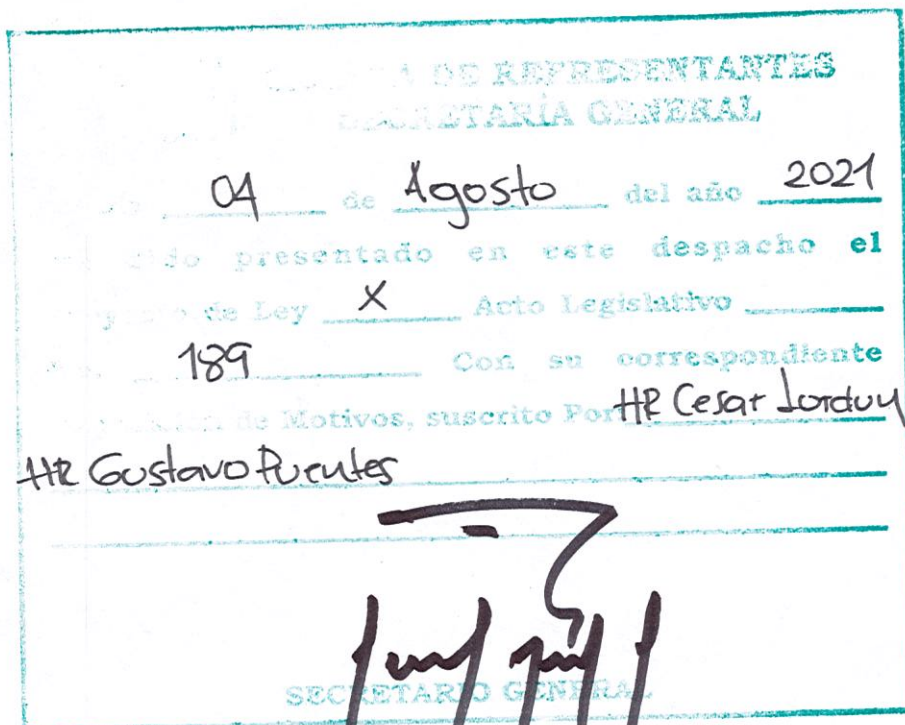 A DE REPRESENTANTES
SECRETARÍA GENERAL
04 de Agosto del año 2021
presentado en este despacho el
de Ley X Acto Legislativo
189 Con su correspondiente
de Motivos, suscrito Por HR Cesar Lorduy
HR Gustavo Puentes
SECRETARIO GENERAL